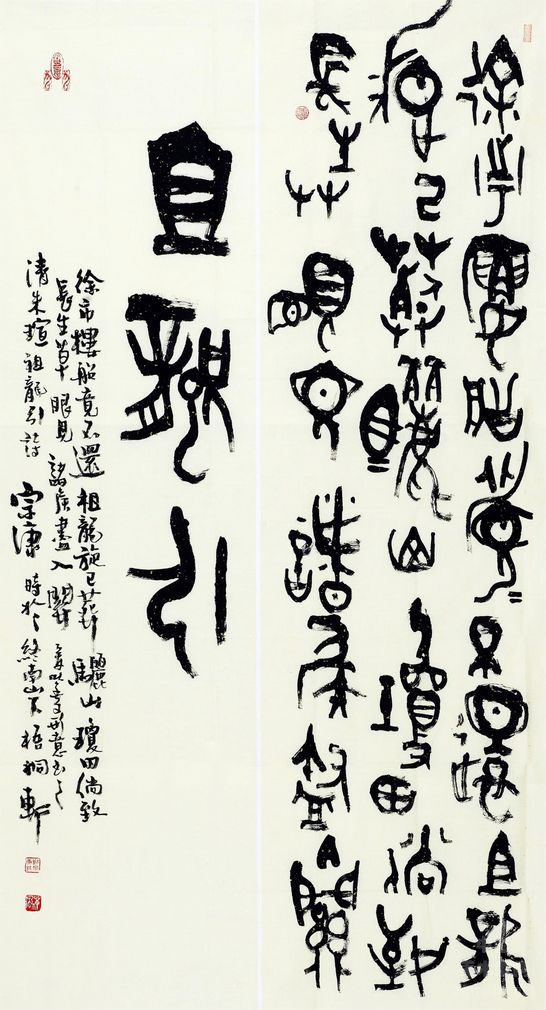 徐市樓船竟不還且龍
旋已葬驪山瓊田倘致
長生艸眼見諸侯盡入關
且龍引
徐市樓船竟不還祖龍旋已葬驪山瓊田倘致
長生草眼見諸侯盡入關
清朱瑄祖龍引詩宗康時於終南山下梧桐軒